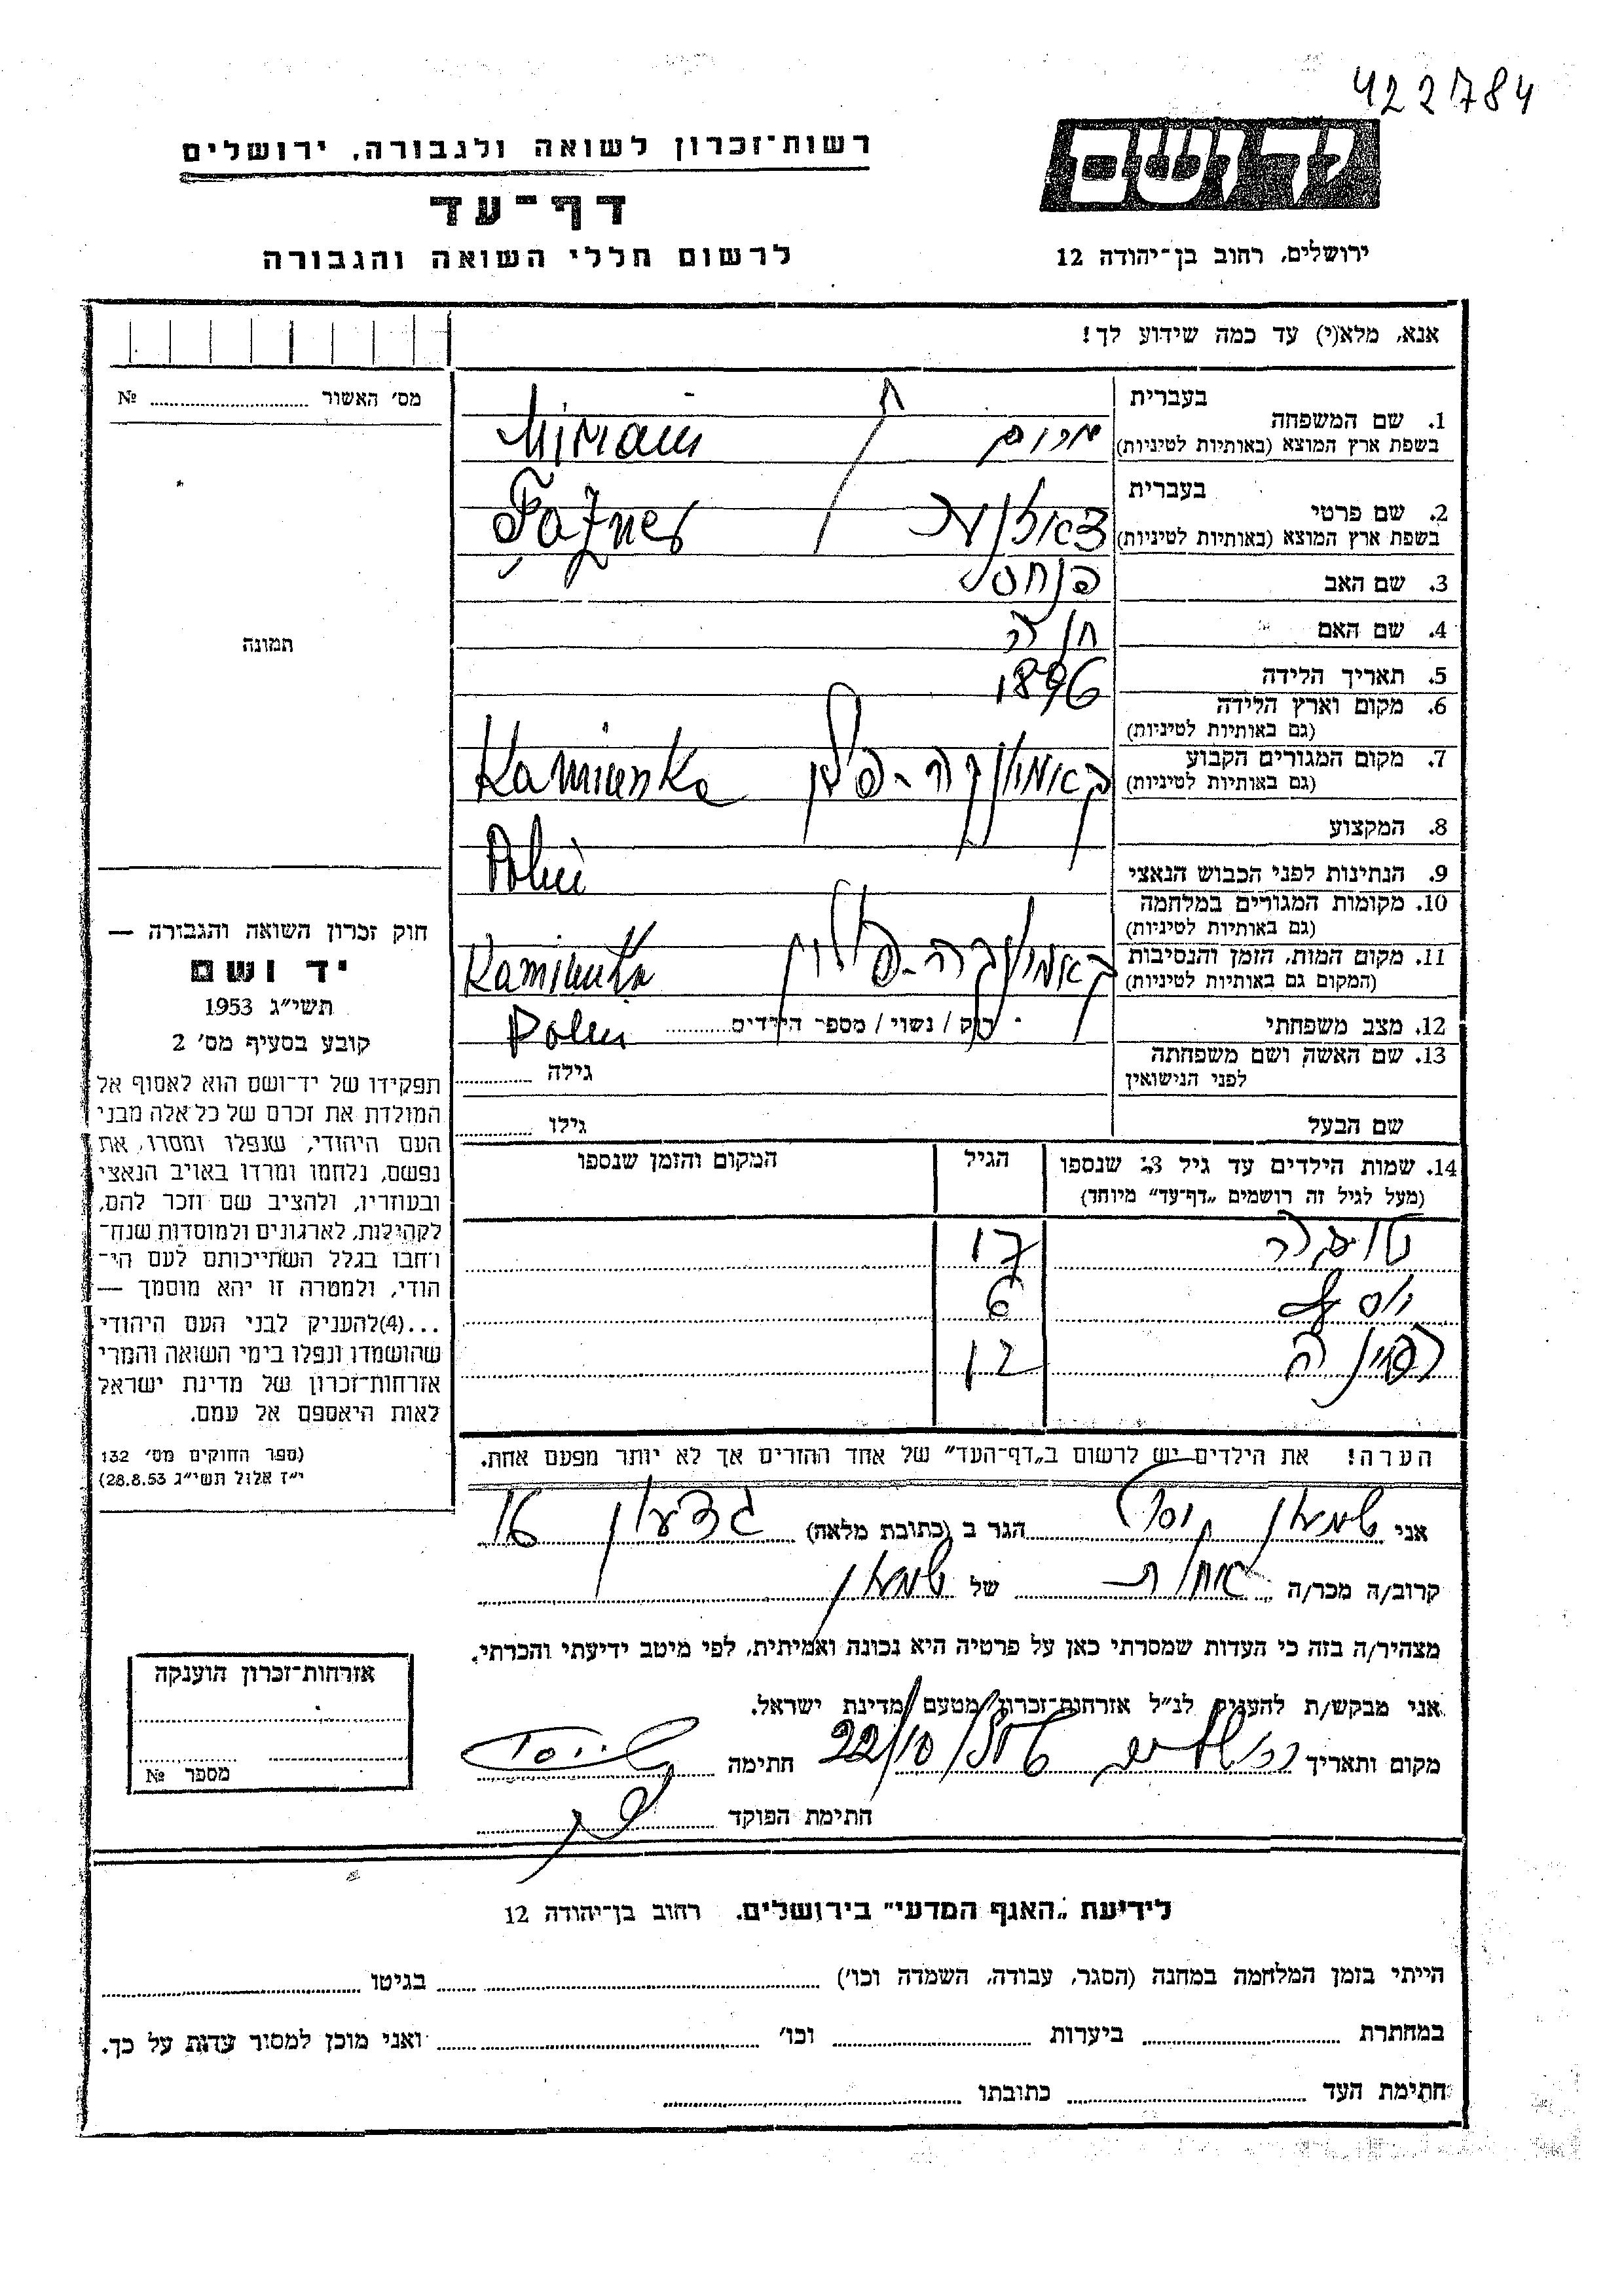 422784
יד ושם
רשות־זכרון לשואה ולגבורה, ירושלים
דף־עד
לרשום חללי השואה והגבורה
ירושלים, רחוב בן־יהודה 12
אנא, מלא(י) עד כמה שידוע לך!
מס' האשור № 
1. שם המשפחה
בעברית
בשפת ארץ המוצא (באותיות לטיניות)
מרים Miriam
2. שם פרטי
בעברית
בשפת ארץ המוצא (באותיות לטיניות)
3. שם האב פנחס
4. שם האם חנה
5. תאריך הלידה 1896
6. מקום וארץ הלידה
(גם באותיות לטיניות)
7. מקום המגורים הקבוע
(גם באותיות לטיניות)
Kamionka
8. המקצוע
9. הנתינות לפני הכבוש הנאצי
10. מקומות המגורים במלחמה
(גם באותיות לטיניות)
11. מקום המות, הזמן והנסיבות
(המקום גם באותיות לטיניות)
Kamionka
12. מצב משפחתי רוק / נשוי / מספר הילדים
13. שם האשה ושם משפחתה
לפני הנישואין
גילה
שם הבעל גילו
14. שמות הילדים עד גיל 18 שנספו
(מעל לגיל זה רושמים „דף־עד” מיוחד)
הגיל
המקום והזמן שנספו
17
יוסף 6
12
הערה! את הילדים יש לרשום ב„דף־העד” של אחד ההורים אך לא יותר מפעם אחת.
תמונה
חוק זכרון השואה והגבורה —
יד ושם
תשי״ג 1953
קובע בסעיף מס' 2
תפקידו של יד־ושם הוא לאסוף אל
המולדת את זכרם של כל אלה מבני
העם היהודי, שנפלו ומסרו את
נפשם, נלחמו ומרדו באויב הנאצי
ובעוזריו, ולהציב שם וזכר להם,
לקהילות, לארגונים ולמוסדות שנח־
רחבו בגלל השתייכותם לעם הי־
הודי, ולמטרה זו יהא מוסמך —
...(4)להעניק לבני העם היהודי
שהושמדו ונפלו בימי השואה והמרי
אזרחות־זכרון של מדינת ישראל
לאות היאספם אל עמם.
(ספר החוקים מס' 132
י״ז אלול תשי״ג 28.8.53)
אני שמעון יוסף הגר ב (כתובת מלאה) גדעון 16
קרוב/ה מכר/ה אחות של שמעון
מצהיר/ה בזה כי העדות שמסרתי כאן על פרטיה היא נכונה ואמיתית, לפי מיטב ידיעתי והכרתי.
אני מבקש/ת להעניק לנ״ל אזרחות־זכרון מטעם מדינת ישראל.
מקום ותאריך ירושלים 22/10/ חתימה
חתימת הפוקד
אזרחות־זכרון הוענקה
מספר №
לידיעת „האגף המדעי” בירושלים. רחוב בן־יהודה 12
הייתי בזמן המלחמה במחנה (הסגר, עבודה, השמדה וכו') בגיטו
במחתרת ביערות וכו' ואני מוכן למסור עדות על כך.
חתימת העד כתובתו